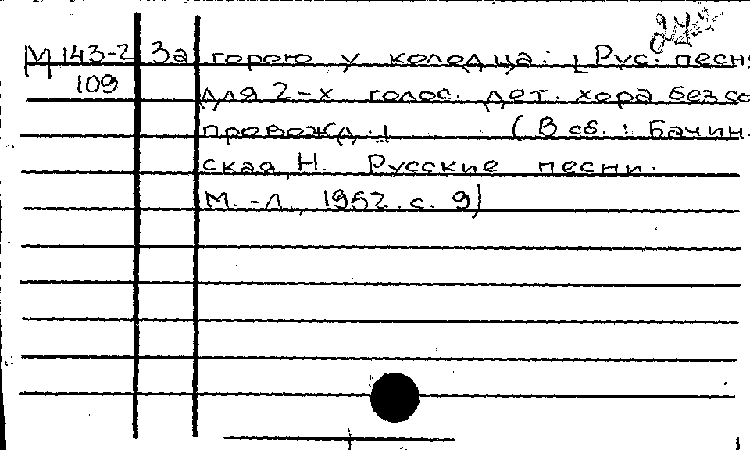 М 143-2 За горою у колодца: [Рус. песня
109 для 2-х голос. дет. хора без со
провожд.] (В сб.: Бачин-
ская Н. Русские песни.
М.-Л., 1952. с. 9)